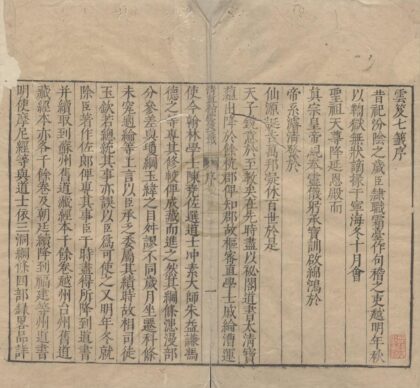 雲笈七籤序
昔祀汾陰之歲臣隸職霜臺作句稽之吏越明年秋
以鞫獄無狀謫掾于寧海冬十月會
聖祖天尊降延恩殿而
真宗皇帝親奉靈儀躬承寶訓啟綿鴻於
帝系濬清發於
仙源誕告萬邦凝休百世於是
天子銳意於至教矣在先時盡以秘閣道書太清寶
蘊出降於餘杭郡俾知郡故樞密直學士戚綸漕運
使今翰林學士陳堯佐選道士冲素大師朱益謙馮
德之等專其修較俾成藏而進之然其綱條漶漫部
分參差與瓊綱玉緯之目舛謬不同歲月坐遷科條
未究適綸等上言以臣承乏委屬其績時故相司徒
王欽若總統其事亦誤以臣為可使之又明年冬就
除臣著作佐郎俾專其事臣于時盡得所降到道書
并續取到蘇州舊道藏經本千餘卷越州台州舊道
藏經本亦各千餘卷及朝廷續降到福建等州道書
明使摩尼經等與道士依三洞綱條四部錄畧品詳